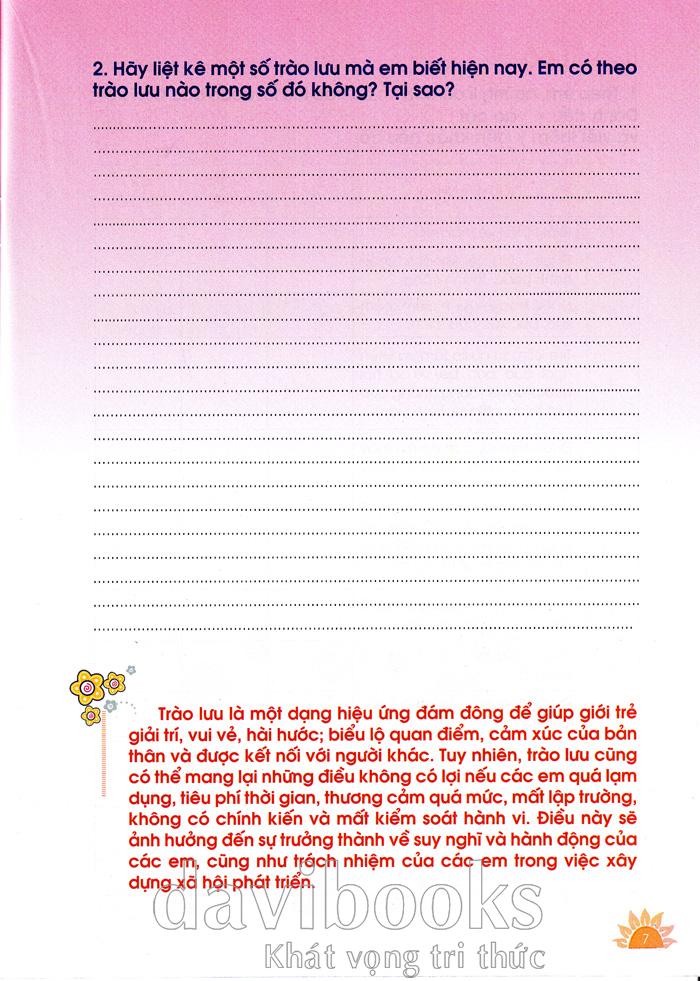 2. Hãy liệt kê một số trào lưu mà em biết hiện nay. Em có theo
trào lưu nào trong số đó không? Tại sao?
Trào lưu là một dạng hiệu ứng đám đông để giúp giới trẻ
giải trí, vui vẻ, hài hước; biểu lộ quan điểm, cảm xúc của bản
thân và được kết nối với người khác. Tuy nhiên, trào lưu cũng
có thể mang lại những điều không có lợi nếu các em quá lạm
dụng, tiêu phí thời gian, thương cảm quá mức, mất lập trường,
không có chính kiến và mất kiểm soát hành vi. Điều này sẽ
ảnh hưởng đến sự trưởng thành về suy nghĩ và hành động của
các em, cũng như trách nhiệm của các em trong việc xây
dựng xã hội phát triển.
davibooks
Khát vọng tri thức
7